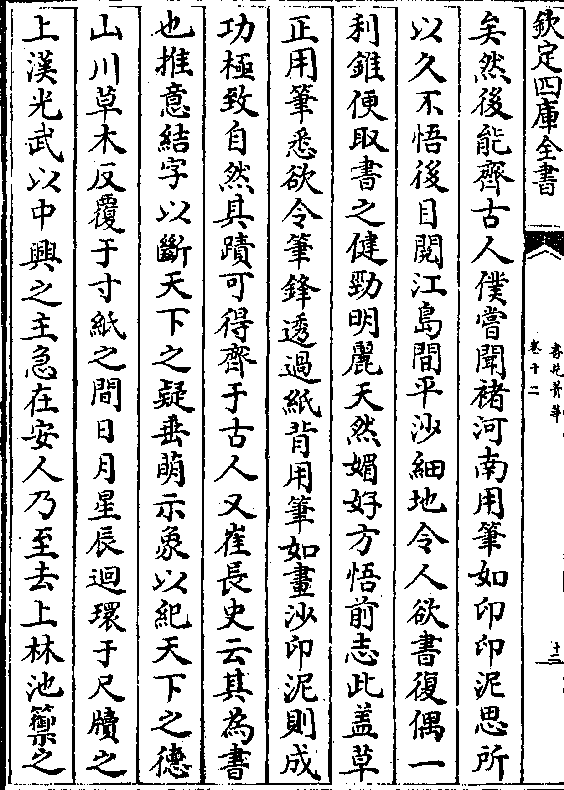 欽定四庫全書
書苑菁華
卷十二
矣然後能齊古人僕嘗聞褚河南用筆如印印泥思所
以久不悟後目閱江島間平沙細地令人欲書復偶一
利錐便取書之健勁明麗天然媚好方悟前志此盖草
正用筆悉欲令筆鋒透過紙背用筆如畫沙印泥則成
功極致自然其蹟可得齊于古人又崔長史云其為書
也推意結字以斷天下之疑垂萌示象以紀天下之德
山川草木反覆于寸紙之間日月星辰迴環于尺牘之
上漢光武以中興之主急在安人乃至去上林池籞之